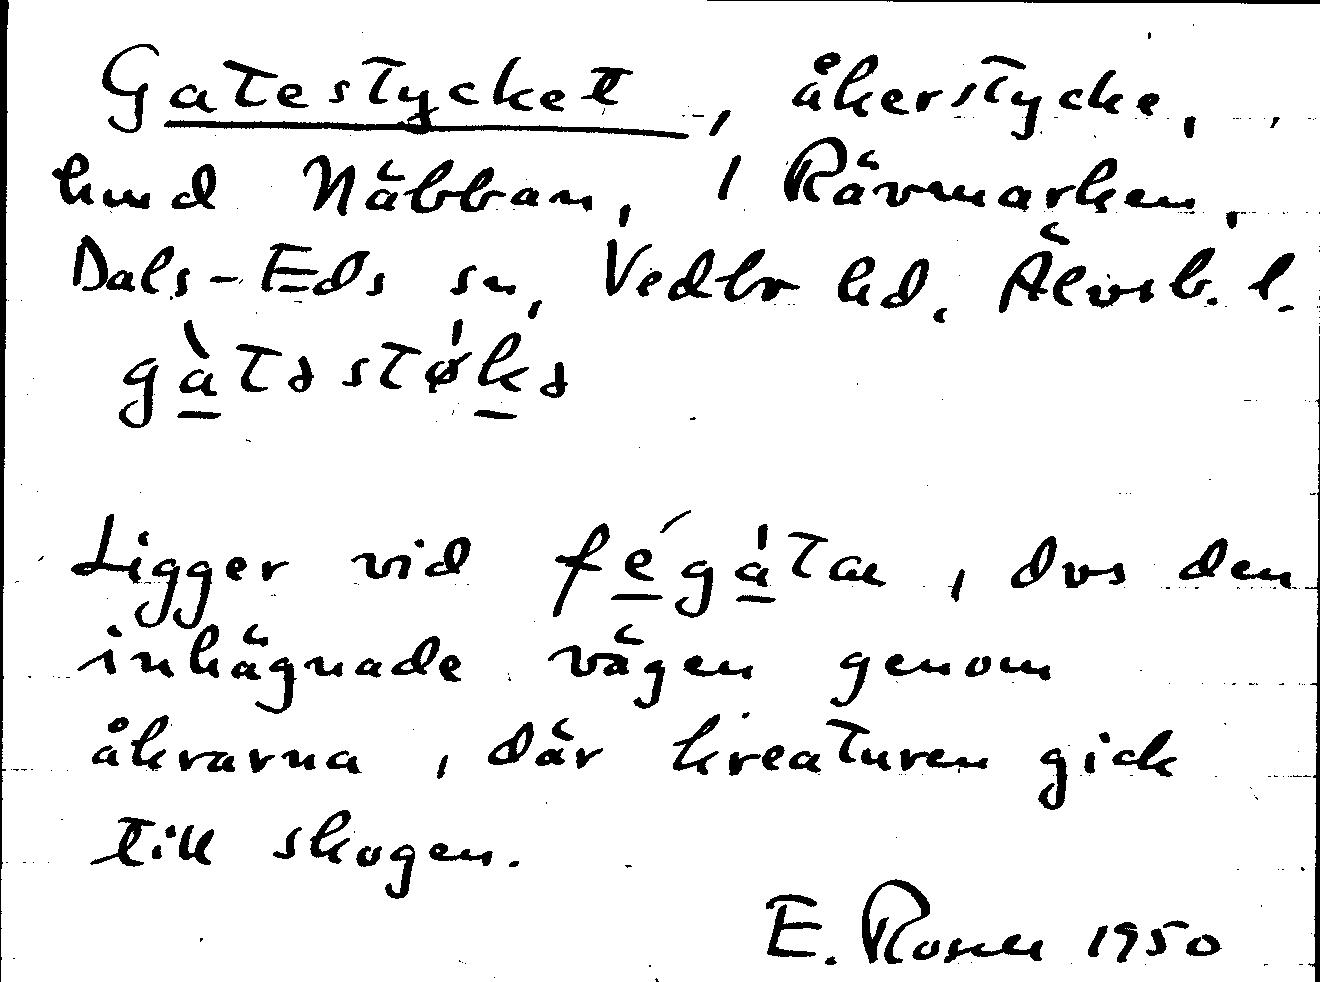 Gatestycket, åkerstycke,
hmd Näbban, 1 Rävmarken,
Dals-Eds sn, Vedbo hd, Älvsb. l.
gàtəstø̍kə
Ligger vid fégȧtæ, dvs den
inhägnade vägen genom
åkrarna, där kreaturen gick
till skogen.
E. Rosell 1950